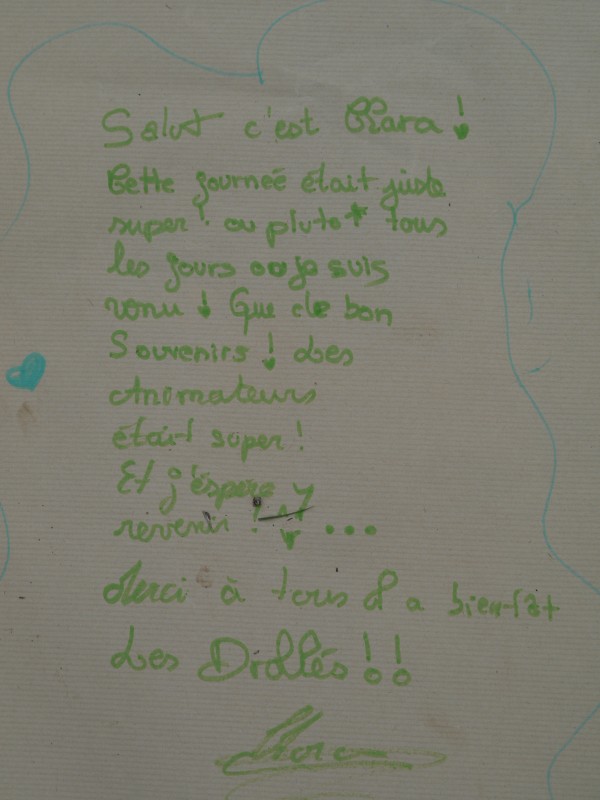 Salut c'est Clara !
Cette journeé était juste
super ! ou pluto* tous
les jours ou je suis
venu ! Que de bon
Souvenirs ! Les
Animateurs
était super !
Et j'éspere y
revenir ! ...
Merci à tous & a bien-tôt
Les Drollés !!